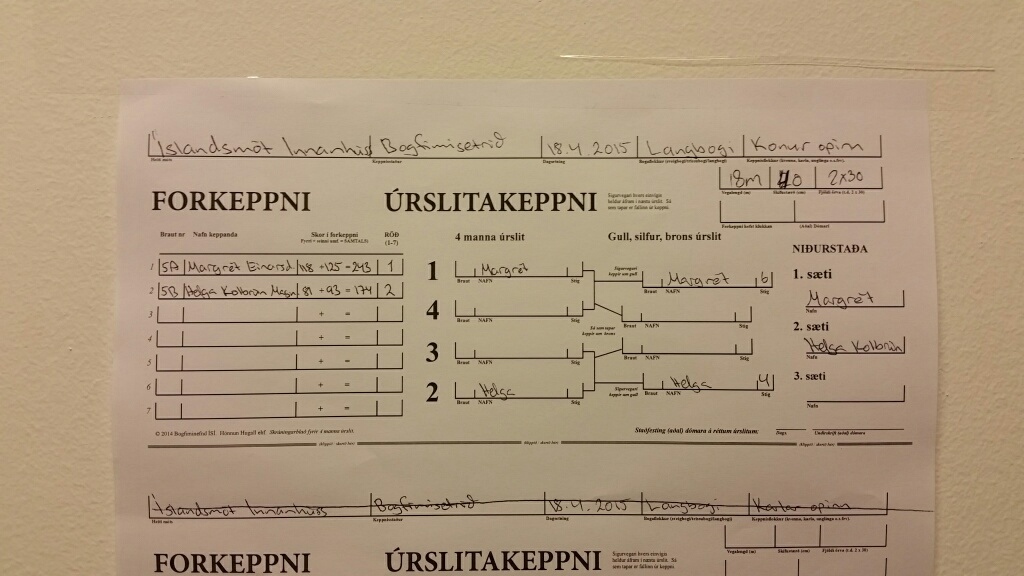 Íslandsmót Innanhúss Bogfimisetrið 18.4.2015 Langbogi Konur opinn
Heiti móts Keppnisstaður Dagsetning Bogaflokkur (sveigbogi/trissubogi/langbogi) Keppnisflokkur (kvenna, karla, unglinga o.s.frv.)
18m 40 2x30
Vegalengd (m) Skífustærð (cm) Fjöldi örva (t.d. 2 x 30)
FORKEPPNI ÚRSLITAKEPPNI
Sigurvegari hvers einvígis
heldur áfram í næstu úrslit. Sá
sem tapar er fallinn úr keppni.
Forkeppni hefst klukkan (Aðal) Dómari
Braut nr Nafn keppanda Skor í forkeppni RÖÐ
(1-7)
4 manna úrslit Gull, silfur, brons úrslit
NIÐURSTAÐA
1 5A Margrét Einarsd 118 +125 = 243 1
2 5B Helga Kolbrún Magn 81 + 93 = 174 2
3 + =
4 + =
5 + =
6 + =
7 + =
1 Margrét
Braut NAFN Stig
4
Braut NAFN Stig
3
Braut NAFN Stig
2 Helga
Braut NAFN Stig
Sigurvegari
keppir um gull
Margrét 6
Braut NAFN Stig
Sá sem tapar
keppir um brons
Braut NAFN Stig
Braut NAFN Stig
Sigurvegari
keppir um gull
Helga 4
Braut NAFN Stig
1. sæti
Margrét
Nafn
2. sæti
Helga Kolbrún
Nafn
3. sæti
Nafn
© 2014 Bogfiminefnd ÍSÍ Skráningarblað fyrir 4 manna úrslit.
Staðfesting (aðal) dómara á réttum úrslitum: Dags. Undirskrift (aðal) dómara
Íslandsmót Innanhúss Bogfimisetrið 18.4.2015 Langbogi Karlar opinn
Heiti móts Keppnisstaður Dagsetning Bogaflokkur (sveigbogi/trissubogi/langbogi) Keppnisflokkur (kvenna, karla, unglinga o.s.frv.)
Vegalengd (m) Skífustærð (cm) Fjöldi örva (t.d. 2 x 30)
FORKEPPNI ÚRSLITAKEPPNI
Sigurvegari hvers einvígis
heldur áfram í næstu úrslit. Sá
sem tapar er fallinn úr keppni.